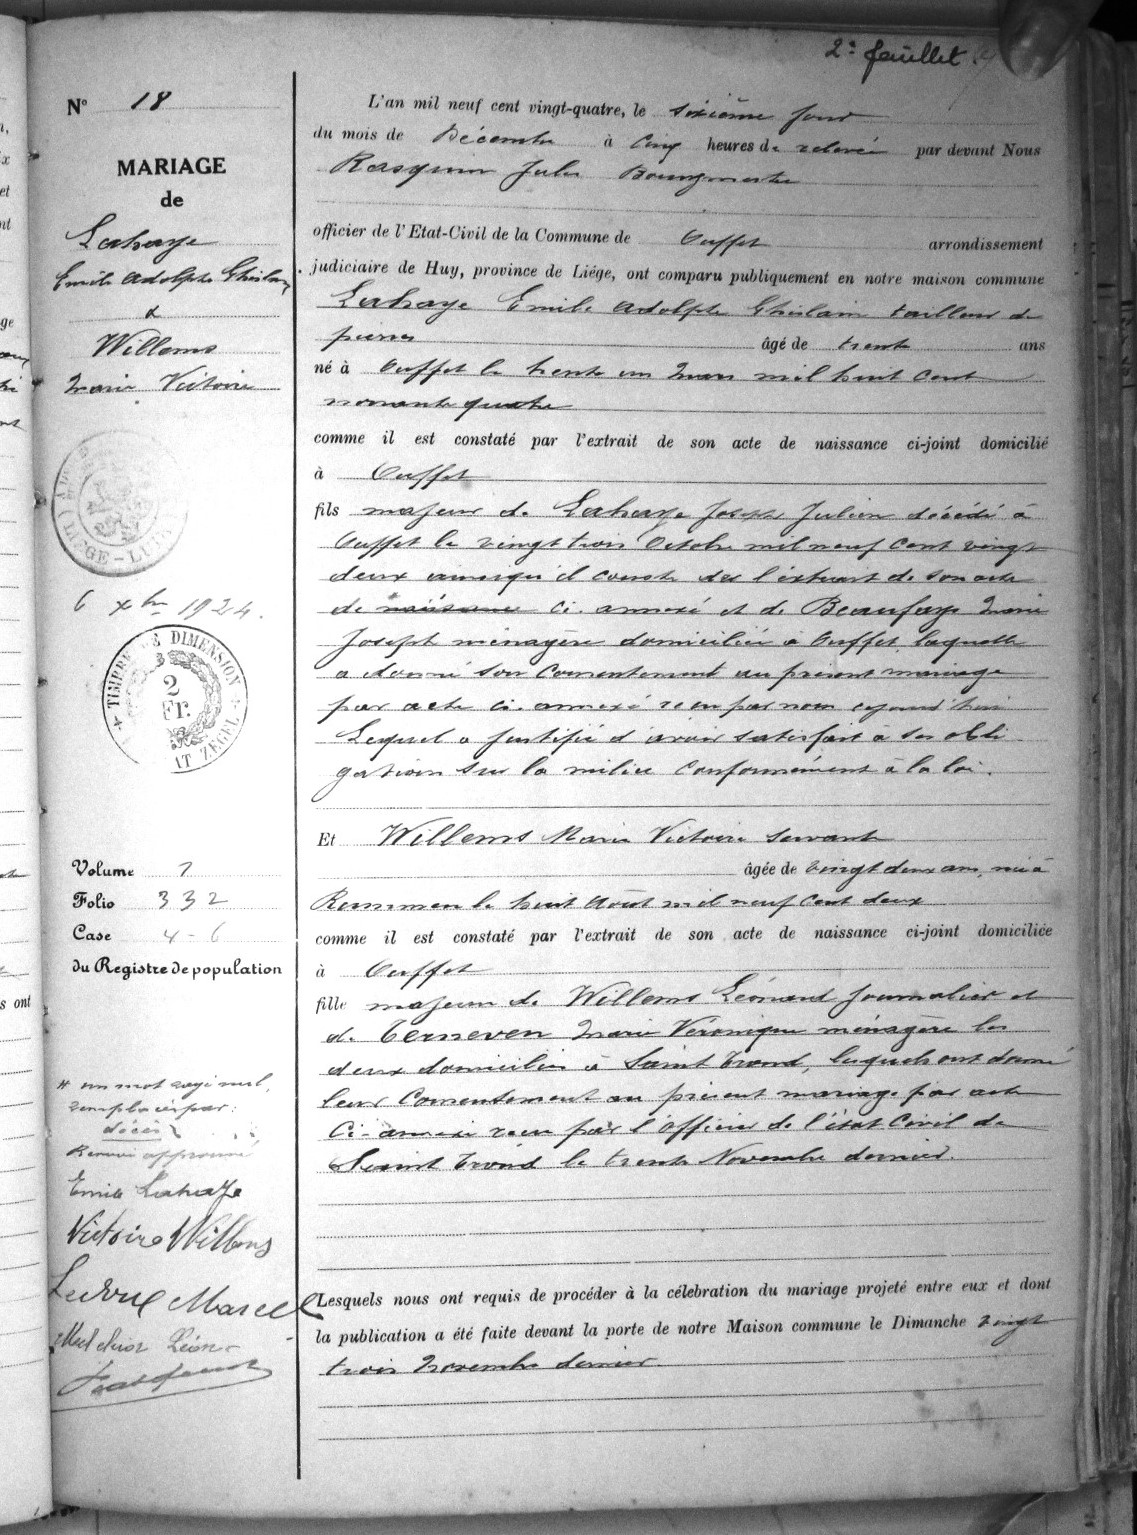 2e feuillet
N° 18
MARIAGE
de
Lahaye
Emile Adolphe Ghislain
&
Willems
Marie Victoire
LIÈGE - LUIK
6 Xbre 1924.
TIMBRE DE DIMENSION
2
Fr.
AT ZEGEL
Volume 7
Folio 332
Case 4-6
du Registre de population
# un mot rayé nul,
remplacé par:
décès
Renvoi approuvé
Emile Lahaye
Victoire Willems
Marcel
Melchior Léon
L'an mil neuf cent vingt-quatre, le sixième jour
du mois de Décembre à cinq heures de relevée par devant Nous
Rasquin Jules Bourgmestre
officier de l'Etat-Civil de la Commune de Ouffet arrondissement
judiciaire de Huy, province de Liége, ont comparu publiquement en notre maison commune
Lahaye Emile Adolphe Ghislain tailleur de
pierres âgé de trente ans
né à Ouffet le trente un Mars mil huit cent
nonante quatre
comme il est constaté par l'extrait de son acte de naissance ci-joint domicilié
à Ouffet
fils majeur de Lahaye Joseph Julien décédé à
Ouffet le vingt trois Octobre mil neuf cent vingt
deux ainsi qu'il conste de l'extrait de son acte
de naissance ci-annexé et de Beaufays Marie
Joseph ménagère domiciliée à Ouffet, laquelle
a donné son consentement au présent mariage
par acte ci-annexé reçu par nous cejourd'hui
Lequel a justifié d'avoir satisfait à ses obli
gations sur la milice conformément à la loi.
Et Willems Marie Victoire servante
âgée de vingt deux ans, née à
Rummen le huit Août mil neuf cent deux
comme il est constaté par l'extrait de son acte de naissance ci-joint domiciliée
à Ouffet
fille majeure de Willems Léonard journalier et
de Terneven Marie Véronique ménagère les
deux domiciliés à Saint Trond, lesquels ont donné
leur consentement au présent mariage par acte
ci-annexé reçu par l'Officier de l'état civil de
Saint Trond le trente Novembre dernier.
Lesquels nous ont requis de procéder à la célébration du mariage projeté entre eux et dont
la publication a été faite devant la porte de notre Maison commune le Dimanche vingt
trois novembre dernier